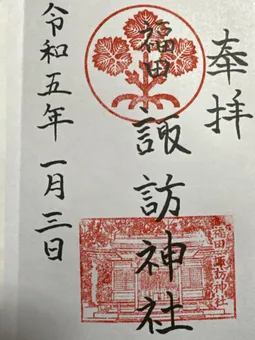 奉拝
福田
諏訪神社
福田諏訪神社
令和五年一月三日